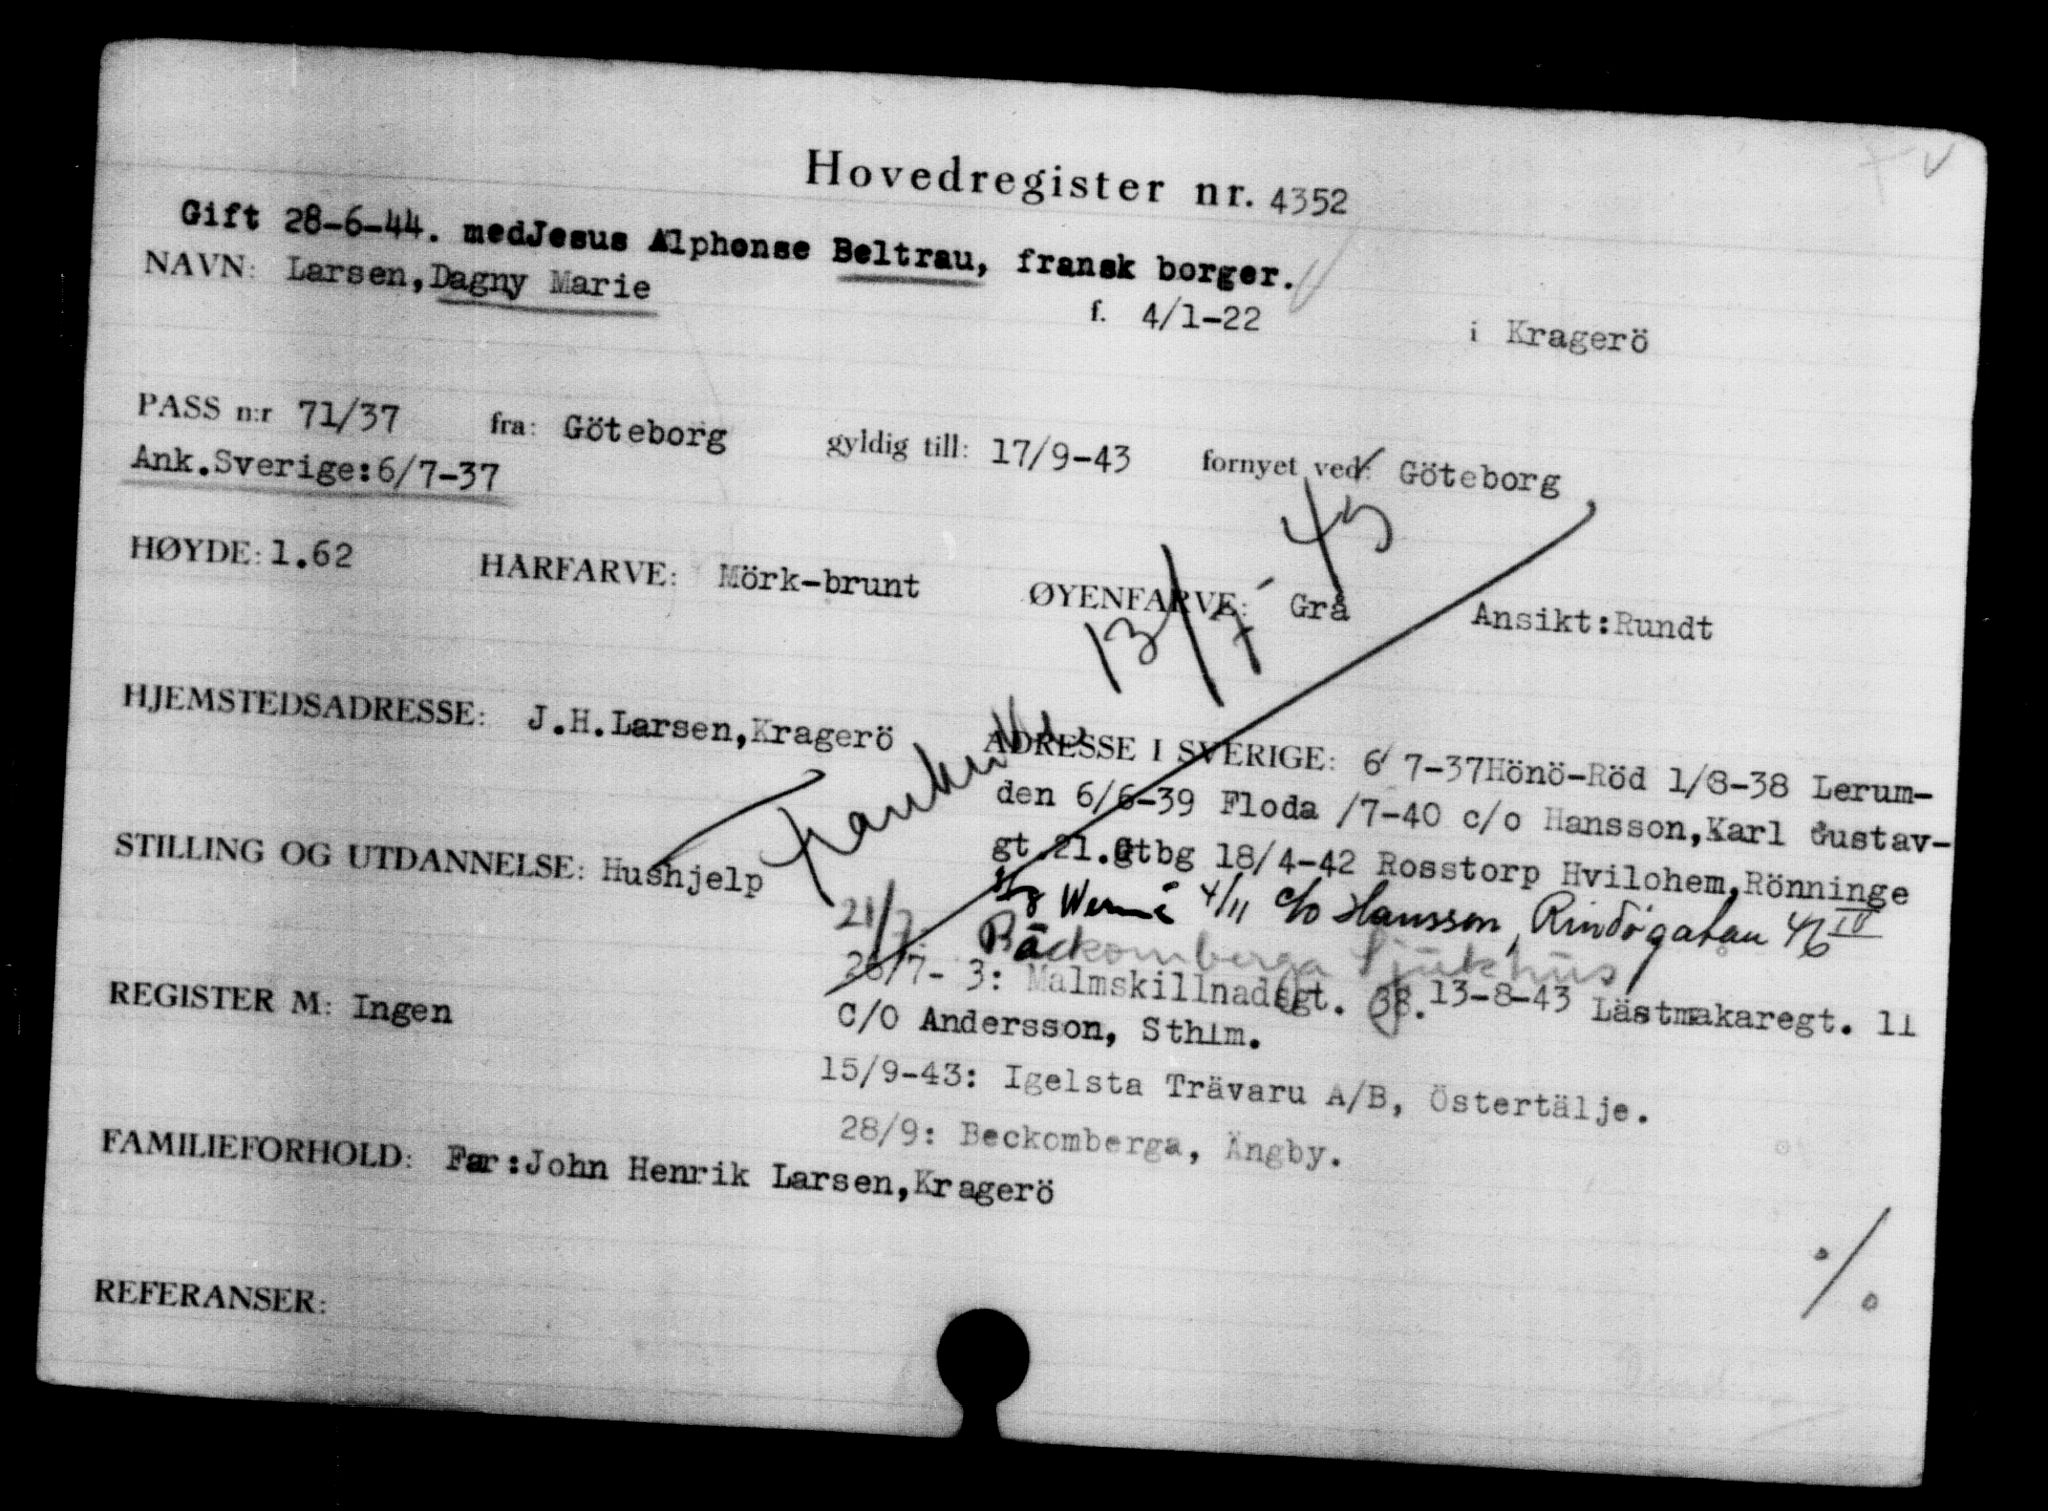 Hovedregister nr. 4352
Gift 28-6-44. medJesus Alphonse Beltrau, fransk borger.
NAVN: Larsen,Dagny Marie
f. 4/1-22 i Kragerö
PASS n:r 71/37 fra: Göteborg gyldig till: 17/9-43 fornyet ved: Göteborg
Ank.Sverige:6/7-37
HØYDE: 1.62 HÅRFARVE: Mörk-brunt ØYENFARVE: Grå Ansikt:Rundt
Frankrike 13/7-45
HJEMSTEDSADRESSE: J.H.Larsen,Kragerö
ADRESSE I SVERIGE: 6/7-37Hönö-Röd 1/8-38 Lerum-
den 6/6-39 Floda /7-40 c/o Hansson,Karl Gustav-
gt.21.Gtbg 18/4-42 Rosstorp Hvilohem,Rönninge
STILLING OG UTDANNELSE: Hushjelp
4/11 c/o Hansson, Rindögatan 46 IV
21/7. Bäckomberga Sjukhus
26/7- 3: Malmskillnadsgt. 38. 13-8-43 Lästmakaregt. 11
C/O Andersson, Sthlm.
REGISTER M: Ingen
15/9-43: Igelsta Trävaru A/B, Östertälje.
28/9: Beckomberga, Ängby.
FAMILIEFORHOLD: Far:John Henrik Larsen,Kragerö
%
REFERANSER: